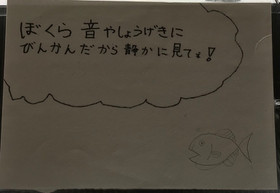 ぼくら 音やしょうげきに
びんかんだから静かに見てね!